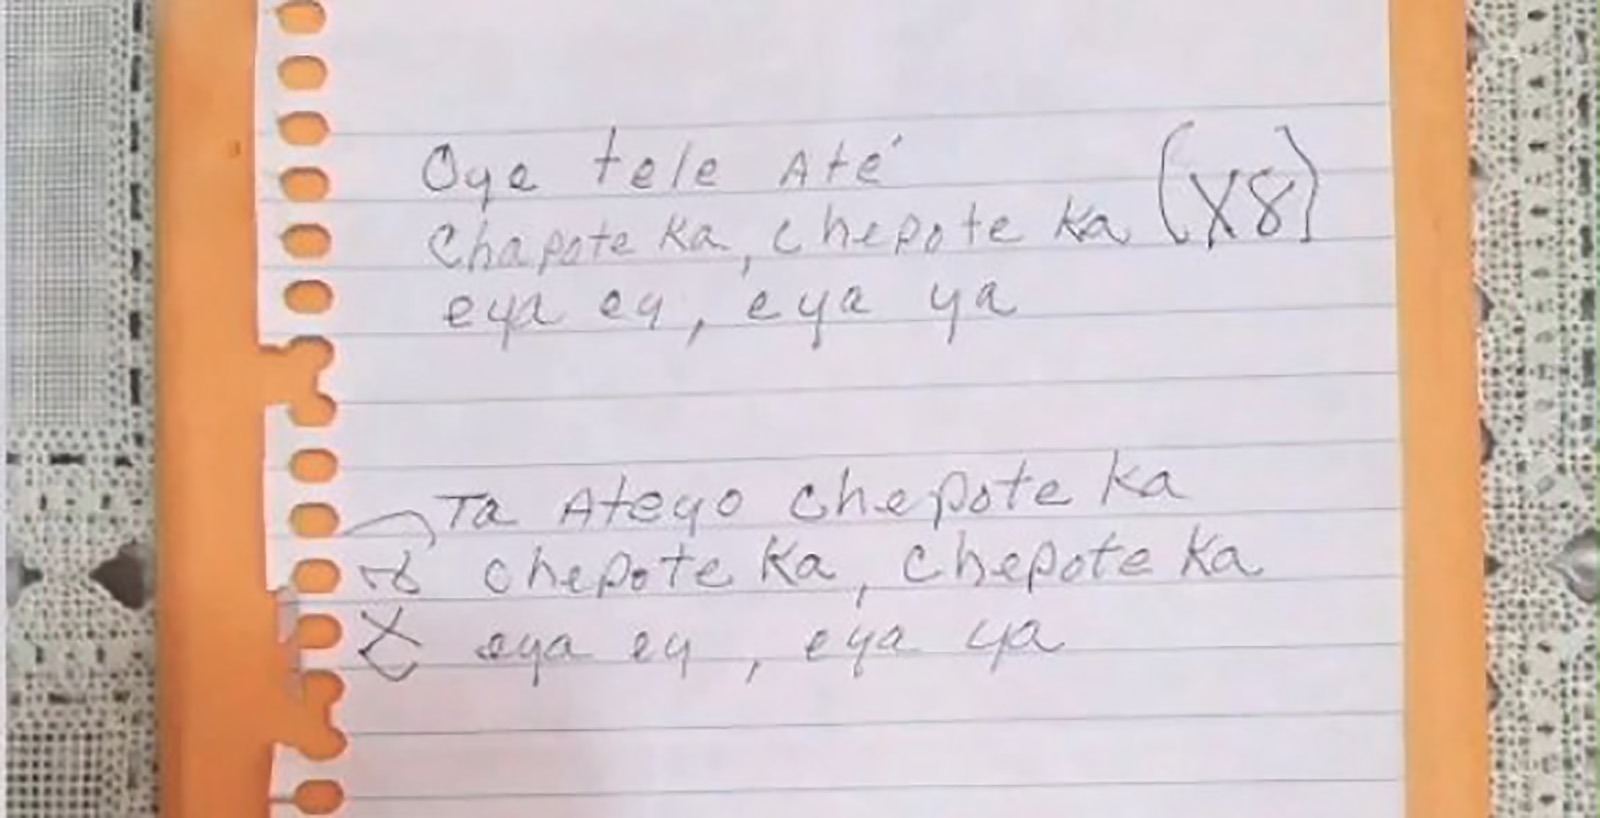 Oye tele Até
Chapote ka, chepote ka (X8)
eya ey, eya ya
Ta Ateyo chepote ka
chepote ka, chepote ka
eya ey, eya ya